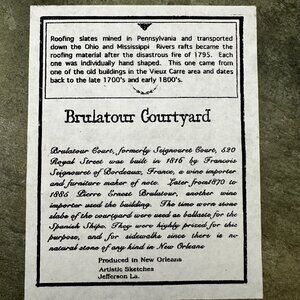 Roofing slates mined in Pennsylvania and transported
down the Ohio and Mississippi Rivers rafts became the
roofing material after the disastrous fire of 1795. Each
one was individually hand shaped. This one came from
one of the old buildings in the Vieux Carre area and dates
back to the late 1700's and early 1800's.
Brulatour Courtyard
Brulatour Court, formerly Seignouret Court, 520
Royal Street was built in 1816 by Francois
Seignouret of Bordeaux, France, a wine importer
and furniture maker of note. Later from 1870 to
1885 Pierre Ernest Brulatour, another wine
importer used the building. The time worn stone
slabs of the courtyard were used as ballasts for the
Spanish Ships. They were highly prized for this
purpose, and for sidewalks since there is no
natural stone of any kind in New Orleans
Produced in New Orleans
Artistic Sketches
Jefferson La.